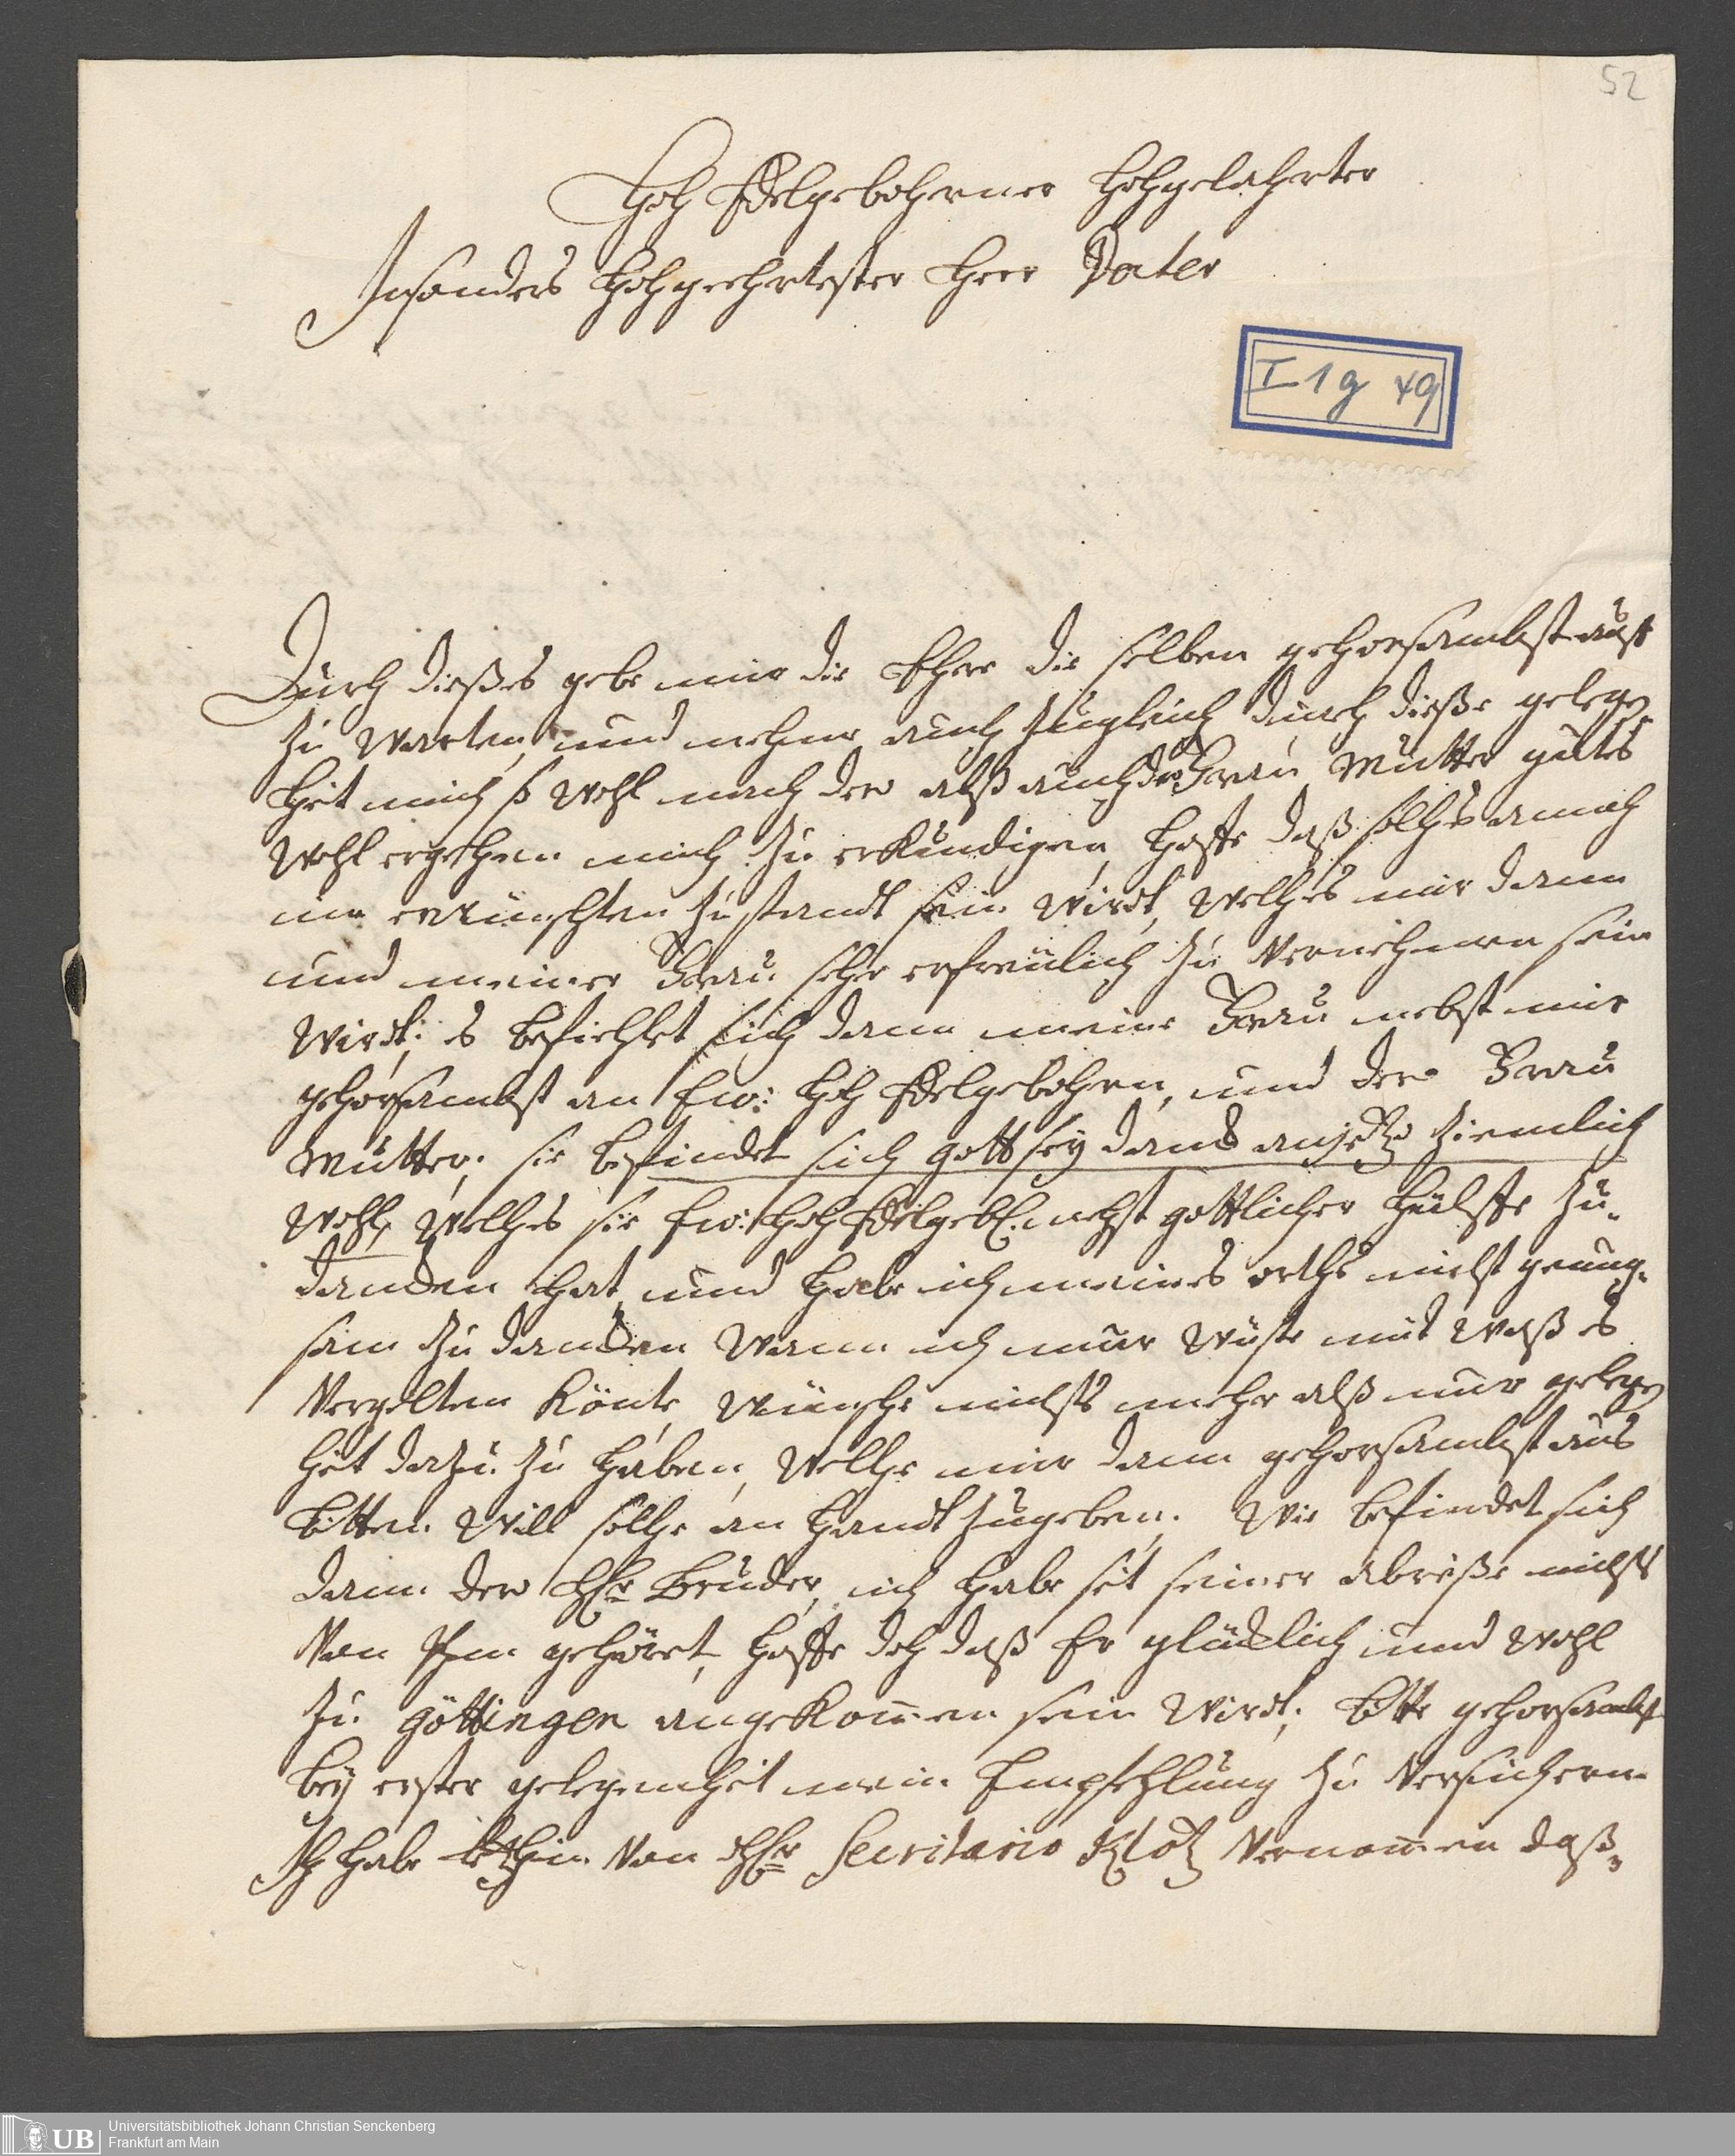 52
Hoch Edelgebohrner Hochgelahrter
Insonders Hochgeehrtester Herr Docter
I 1 g 49
Durch dießes gebe mir die Ehre die selben gehorsambst auff
zu warten, und nehme auch zugleich durch dieße gelegen
heit mich so wohl nach dero alß auch der Frau Mutter gutes
wohl ergehen mich zu erkundigen, hoffe daß solches annoch
im erwünschten zustandt sein wirdt, welches mir dann
und meiner Frau sehr erfreulich zu vernehmen sein
wirdt; es befiehlet sich dann meine Frau nebst mir
gehorsambst an Ew: Hoch Edelgebohren, und dero Frau
Mutter; sie befindet sich gott sey danck anjetzo ziemlich
wohl, welches sie Ew: Hoch Edelgeb. nechst gottlicher hülffe zu-
dancken hat, und habe ich meines orths nicht genug-
sam zu dancken wann ich nur wüste mit waß es
vergelten könte, wünsche nichts mehr alß nur gelegen
heit dazu zu haben, welche mir dann gehorsambst aus
bitten will solche an handt zugeben; wie befindet sich
dann dero HEr Bruder, ich habe seit seiner abreiße nichts
von Ihm gehöret, hoffe doch daß Er glücklich und wohl
zu göttingen angekommen sein wirdt; bitte gehorsambst
bey erster gelegenheit mein Empfehlung zu versichern.
Ich habe letzthin von HEr Secritario Klotz vernommen daß
UB
Universitätsbibliothek Johann Christian Senckenberg
Frankfurt am Main